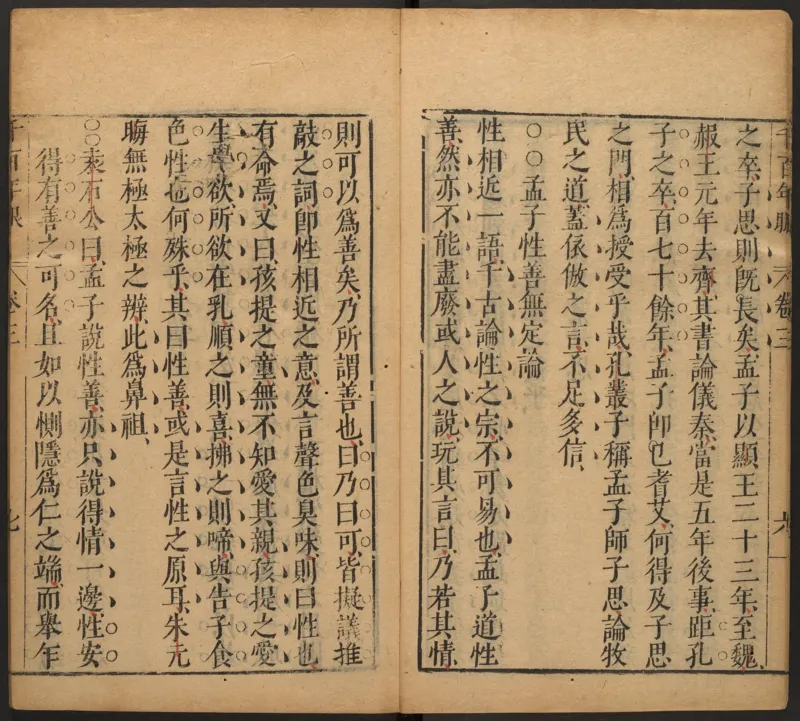 千百年眼 卷三 六
之卒子思則旣長矣孟子以顯王二十三年至魏
赧王元年去齊其書論儀秦當是五年後事距孔
子之卒百七十餘年孟子卽已耆艾何得及子思
之門相爲授受乎哉孔叢子稱孟子師子思論牧
民之道蓋依倣之言不足多信
○○孟子性善無定論
性相近一語千古論性之宗不可易也孟子道性
善然亦不能盡廢或人之說玩其言曰乃若其情
則可以爲善矣乃所謂善也曰乃曰可皆擬議推
敲之詞卽性相近之意及言聲色臭味則曰性也
有命焉又曰孩提之童無不知愛其親孩提之愛
生學欲所欲在乳順之則喜拂之則啼與告子食
色性也何殊乎其曰性善或是言性之原耳朱元
晦無極太極之辨此爲鼻祖
○○乘石公曰孟子說性善亦只說得情一邊性安
得有善之可名且如以惻隱爲仁之端而舉乍
千百年眼 卷三 七